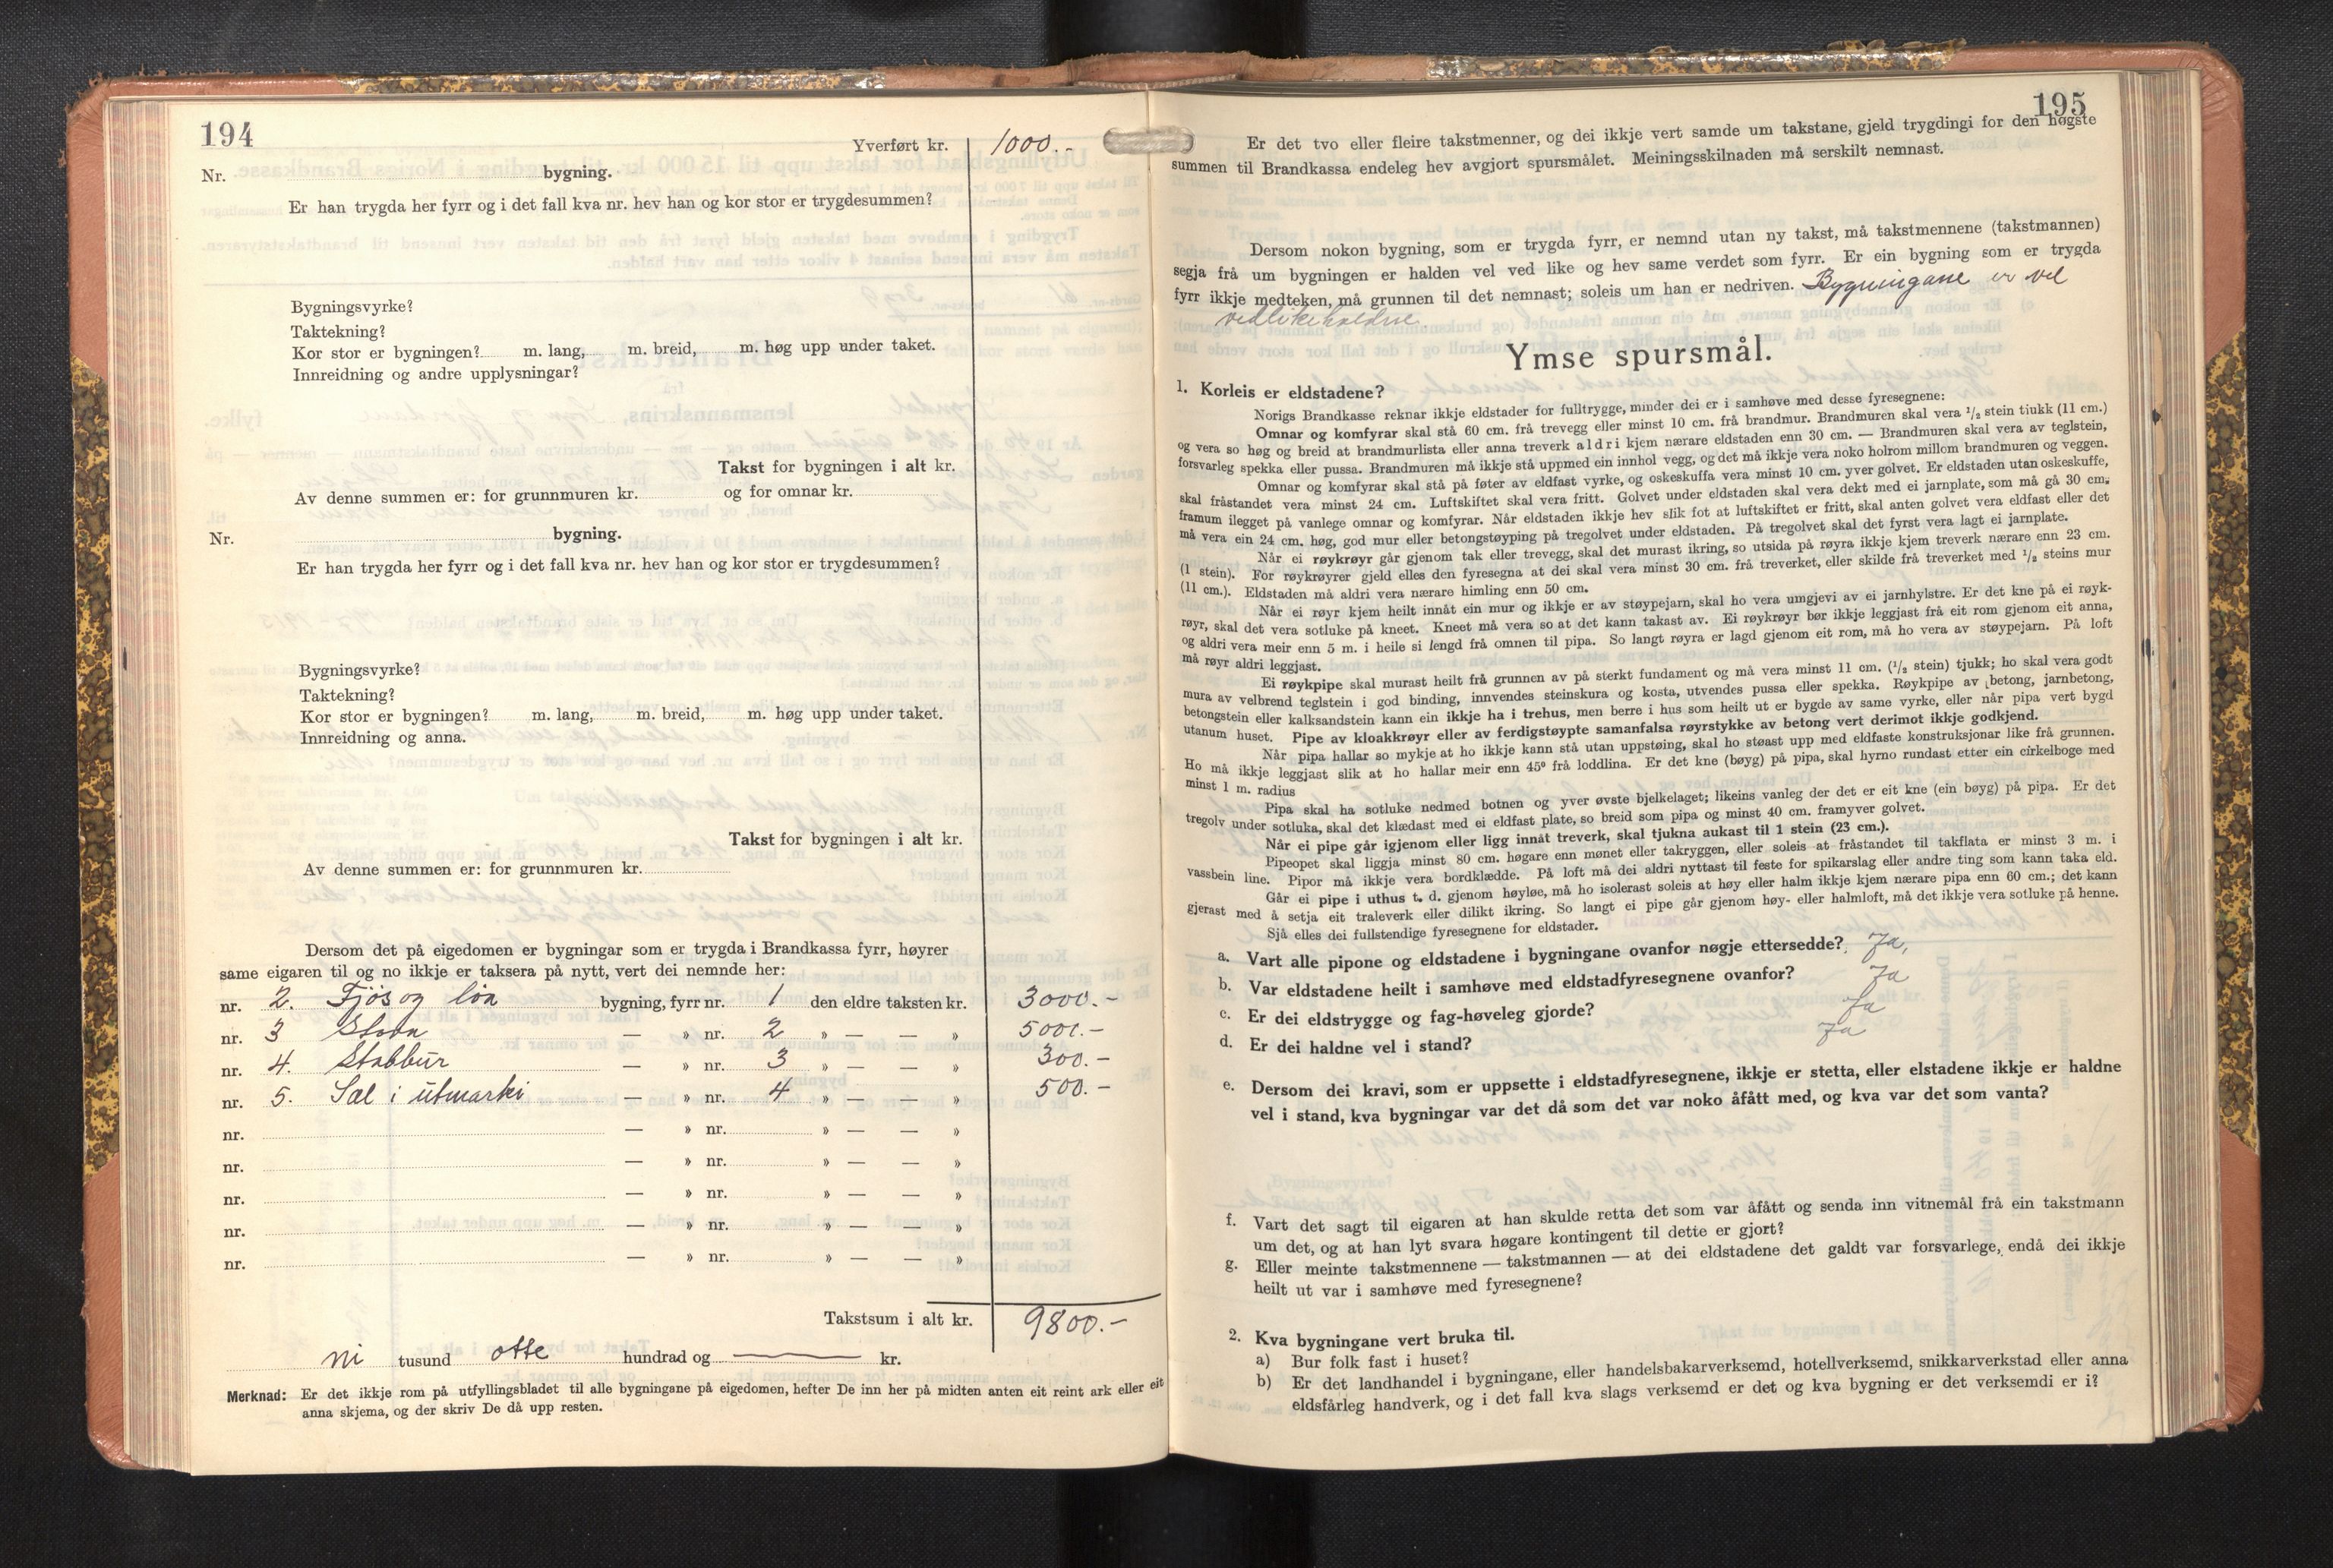 194
Yverført kr. 1000.-
Nr. bygning.
Er han trygda her fyrr og i det fall kva nr. hev han og kor stor er trygdesummen?
Bygningsvyrke?
Taktekning?
Kor stor er bygningen? m. lang, m. breid, m. høg upp under taket.
Innreidning og andre upplysningar?
Takst for bygningen i alt kr.
Av denne summen er: for grunnmuren kr. og for omnar kr.
Nr. bygning.
Er han trygda her fyrr og i det fall kva nr. hev han og kor stor er trygdesummen?
Bygningsvyrke?
Taktekning?
Kor stor er bygningen? m. lang, m. breid, m. høg upp under taket.
Innreidning og anna.
Takst for bygningen i alt kr.
Av denne summen er: for grunnmuren kr.
Dersom det på eigedomen er bygningar som er trygda i Brandkassa fyrr, høyrer
same eigaren til og no ikkje er taksera på nytt, vert dei nemnde her:
nr. 2. Fjös og löa bygning, fyrr nr. 1 den eldre taksten kr. 3000.-
nr. 3 Stova — » nr. 2 » — — » 5000.-
nr. 4. Stabbur — » nr. 3 » — — » 300.-
nr. 5. Sæl i utmarki — » nr. 4 » — — » 500.-
nr. — » nr. » — — »
nr. — » nr. » — — »
nr. — » nr. » — — »
nr. — » nr. » — — »
nr. — » nr. » — — »
Takstsum i alt kr. 9800.-
ni tusund otte hundrad og — kr.
Merknad: Er det ikkje rom på utfyllingsbladet til alle bygningane på eigedomen, hefter De inn her på midten anten eit reint ark eller eit
anna skjema, og der skriv De då upp resten.
195
Er det tvo eller fleire takstmenner, og dei ikkje vert samde um takstane, gjeld trygdingi for den høgste
summen til Brandkassa endeleg hev avgjort spursmålet. Meiningsskilnaden må serskilt nemnast.
Dersom nokon bygning, som er trygda fyrr, er nemnd utan ny takst, må takstmennene (takstmannen)
segja frå um bygningen er halden vel ved like og hev same verdet som fyrr. Er ein bygning som er trygda
fyrr ikkje medteken, må grunnen til det nemnast; soleis um han er nedriven. Bygningane er vel
vedlikeholdne.
Ymse spursmål.
1. Korleis er eldstadene?
Norigs Brandkasse reknar ikkje eldstader for fulltrygge, minder dei er i samhøve med desse fyresegnene:
Omnar og komfyrar skal stå 60 cm. frå trevegg eller minst 10 cm. frå brandmur. Brandmuren skal vera 1/2 stein tiukk (11 cm.)
og vera so høg og breid at brandmurlista eller anna treverk aldri kjem nærare eldstaden enn 30 cm. — Brandmuren skal vera av teglstein,
forsvarleg spekka eller pussa. Brandmuren må ikkje stå uppmed ein innhol vegg, og det må ikkje vera noko holrom millom brandmuren og veggen.
Omnar og komfyrar skal stå på føter av eldfast vyrke, og oskeskuffa vera minst 10 cm. yver golvet. Er eldstaden utan oskeskuffe,
skal fråstandet vera minst 24 cm. Luftskiftet skal vera fritt. Golvet under eldstaden skal vera dekt med ei jarnplate, som må gå 30 cm.
framum ilegget på vanlege omnar og komfyrar. Når eldstaden ikkje hev slik fot at luftskiftet er fritt, skal anten golvet vera eldfast eller det
må vera ein 24 cm. høg, god mur eller betongstøyping på tregolvet under eldstaden. På tregolvet skal det fyrst vera lagt ei jarnplate.
Når ei røykrøyr går gjenom tak eller trevegg, skal det murast ikring, so utsida på røyra ikkje kjem treverk nærare enn 23 cm.
(1 stein). For røykrøyrer gjeld elles den fyresegna at dei skal vera minst 30 cm. frå treverket, eller skilde frå treverket med 1/2 steins mur
(11 cm.). Eldstaden må aldri vera nærare himling enn 50 cm.
Når ei røyr kjem heilt innåt ein mur og ikkje er av støypejarn, skal ho vera umgjevi av ei jarnhylstre. Er det kne på ei røyk-
røyr, skal det vera sotluke på kneet. Kneet må vera so at det kann takast av. Ei røykrøyr bør ikkje leggjast frå eit rom gjenom eit anna,
og aldri vera meir enn 5 m. i heile si lengd frå omnen til pipa. So langt røyra er lagd gjenom eit rom, må ho vera av støypejarn. På loft
må røyr aldri leggjast.
Ei røykpipe skal murast heilt frå grunnen av på sterkt fundament og må vera minst 11 cm. (1/2 stein) tjukk; ho skal vera godt
mura av velbrend teglstein i god binding, innvendes steinskura og kosta, utvendes pussa eller spekka. Røykpipe av betong, jarnbetong,
betongstein eller kalksandstein kann ein ikkje ha i trehus, men berre i hus som heilt ut er bygde av same vyrke, eller når pipa vert bygd
utanum huset. Pipe av kloakkrøyr eller av ferdigstøypte samanfalsa røyrstykke av betong vert derimot ikkje godkjend.
Når pipa hallar so mykje at ho ikkje kann stå utan uppstøing, skal ho støast upp med eldfaste konstruksjonar like frå grunnen.
Ho må ikkje leggjast slik at ho hallar meir enn 45° frå loddlina. Er det kne (bøyg) på pipa, skal hyrno rundast etter ein cirkelboge med
minst 1 m. radius
Pipa skal ha sotluke nedmed botnen og yver øvste bjelkelaget; likeins vanleg der det er eit kne (ein bøyg) på pipa. Er det
tregolv under sotluka, skal det klædast med ei eldfast plate, so breid som pipa og minst 40 cm. framyver golvet.
Når ei pipe går igjenom eller ligg innåt treverk, skal tjukna aukast til 1 stein (23 cm.).
Pipeopet skal liggja minst 80 cm. høgare enn mønet eller takryggen, eller soleis at fråstandet til takflata er minst 3 m. i
vassbein line. Pipor må ikkje vera bordklædde. På loft må dei aldri nyttast til feste for spikarslag eller andre ting som kann taka eld.
Går ei pipe i uthus t. d. gjenom høyløe, må ho isolerast soleis at høy eller halm ikkje kjem nærare pipa enn 60 cm.; det kann
gjerast med å setja eit traleverk eller dilikt ikring. So langt ei pipe går gjenom høy- eller halmloft, må det ikkje vera sotluke på henne.
Sjå elles dei fullstendige fyresegnene for eldstader.
a. Vart alle pipone og eldstadene i bygningane ovanfor nøgje ettersedde? Ja,
b. Var eldstadene heilt i samhøve med eldstadfyresegnene ovanfor? Ja
c. Er dei eldstrygge og fag-høveleg gjorde? Ja
d. Er dei haldne vel i stand? Ja
e. Dersom dei kravi, som er uppsette i eldstadfyresegnene, ikkje er stetta, eller elstadene ikkje er haldne
vel i stand, kva bygningar var det då som det var noko åfått med, og kva var det som vanta?
f. Vart det sagt til eigaren at han skulde retta det som var åfått og senda inn vitnemål frå ein takstmann
um det, og at han lyt svara høgare kontingent til dette er gjort?
g. Eller meinte takstmennene — takstmannen — at dei eldstadene det galdt var forsvarlege, endå dei ikkje
heilt ut var i samhøve med fyresegnene?
2. Kva bygningane vert bruka til.
a) Bur folk fast i huset?
b) Er det landhandel i bygningane, eller handelsbakarverksemd, hotellverksemd, snikkarverkstad eller anna
eldsfårleg handverk, og i det fall kva slags verksemd er det og kva bygning er det verksemdi er i?